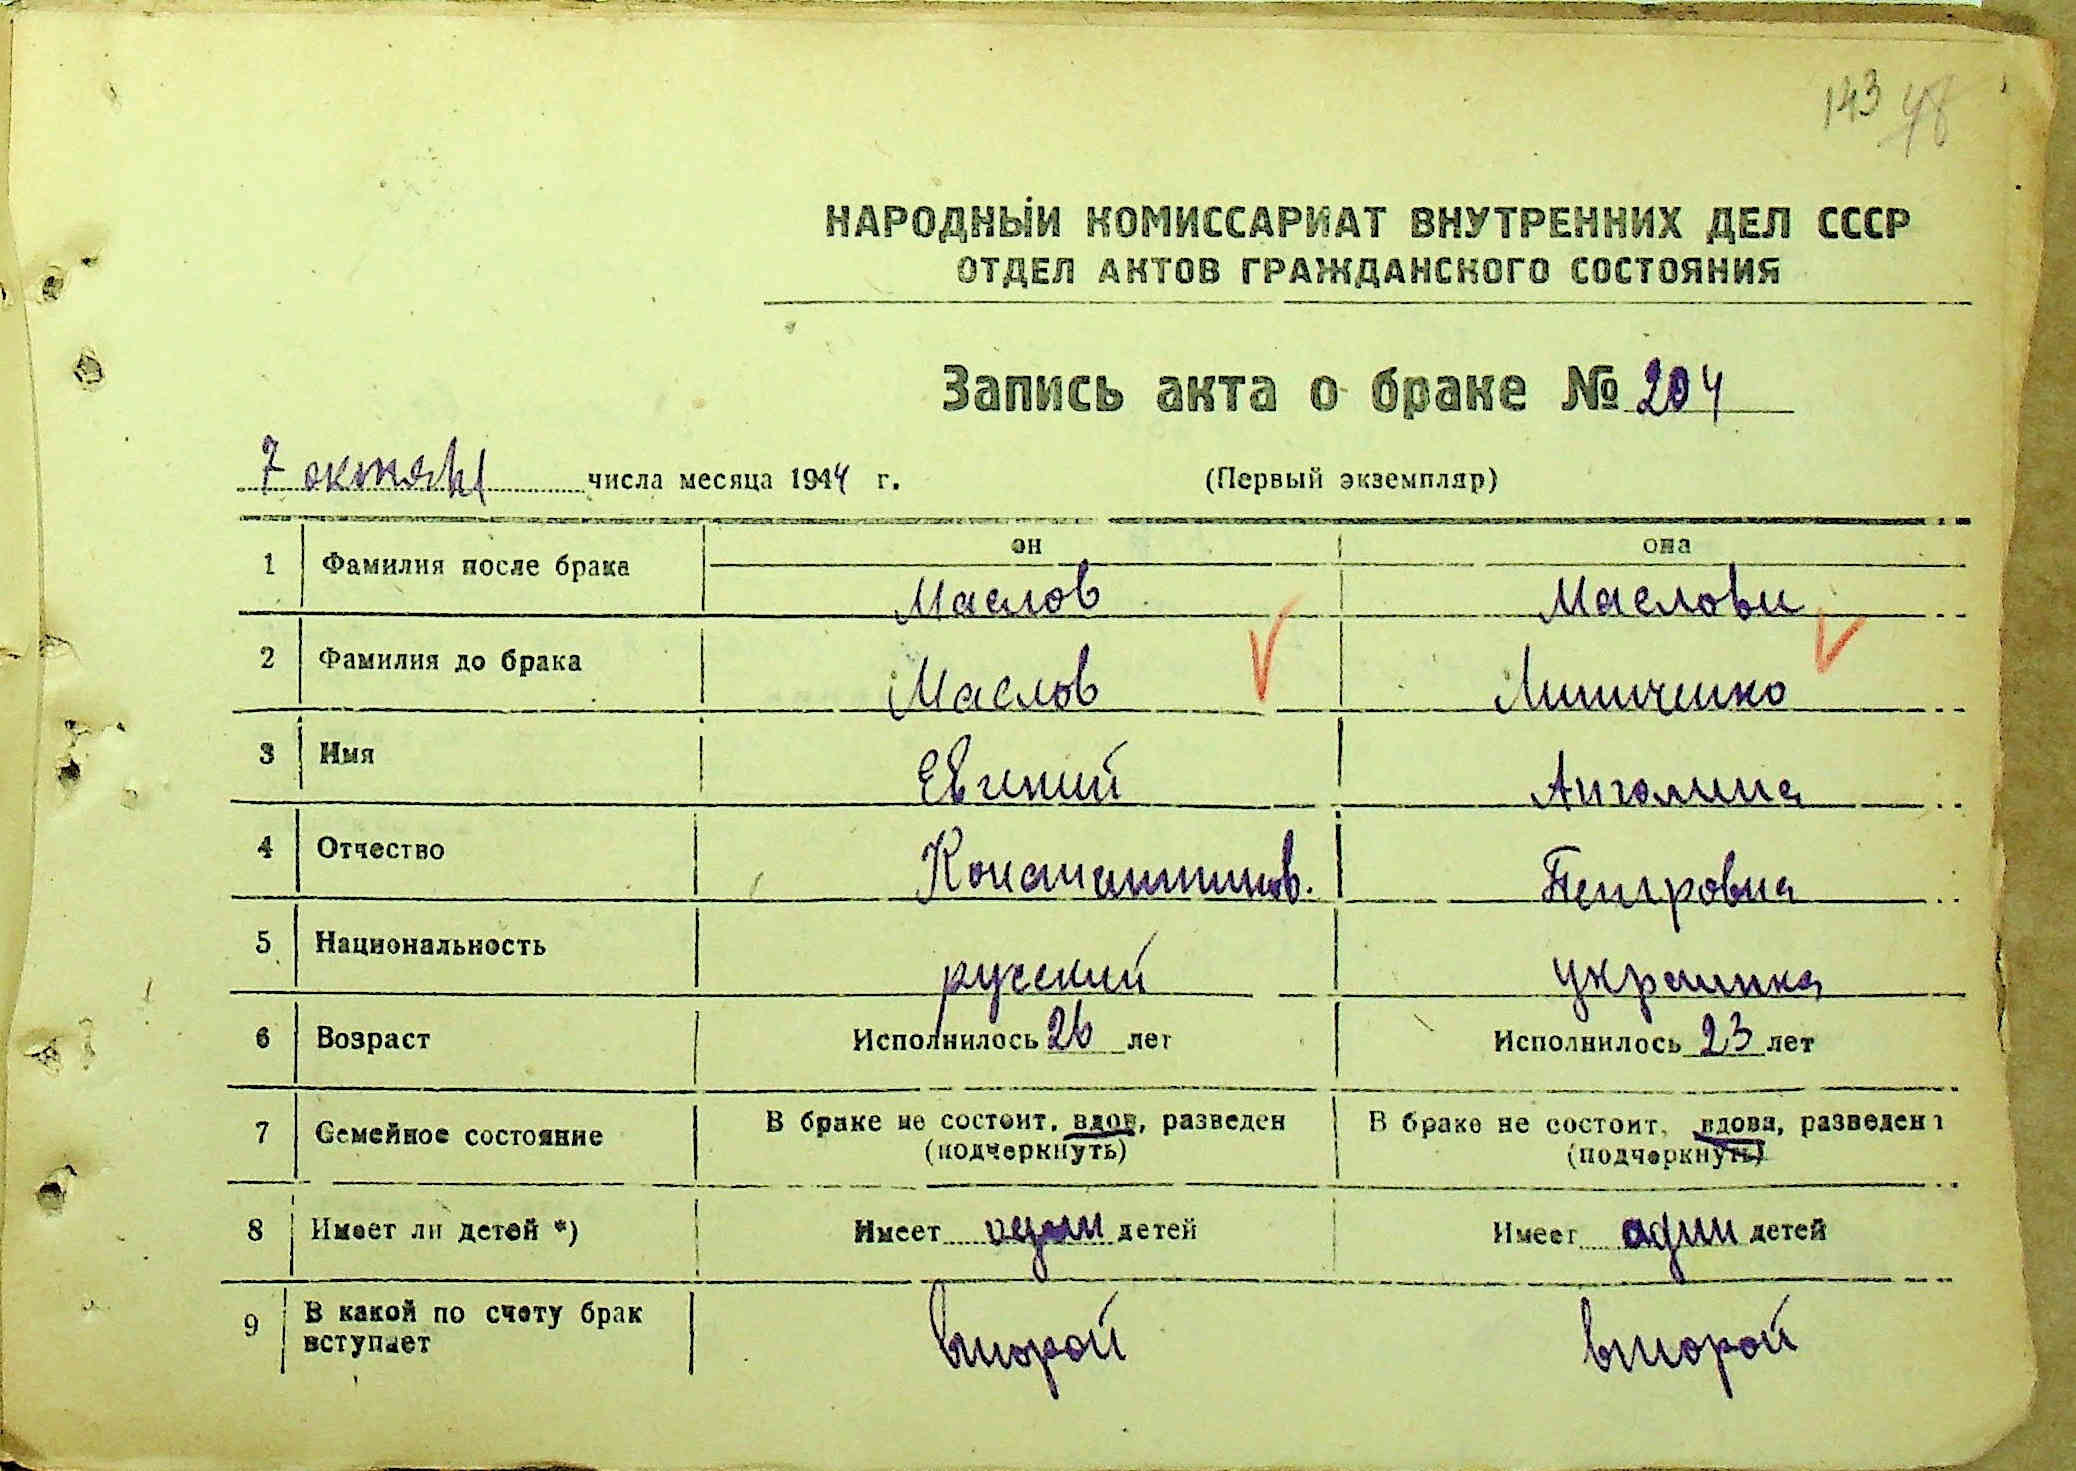 143 48
НАРОДНЫЙ КОМИССАРИАТ ВНУТРЕННИХ ДЕЛ СССР
ОТДЕЛ АКТОВ ГРАЖДАНСКОГО СОСТОЯНИЯ
Запись акта о браке № 204
7 октября числа месяца 1944 г. (Первый экземпляр)
он она
1 Фамилия после брака Маслов Маслова
2 Фамилия до брака Маслов
3 Имя Евгений Анголина
4 Отчество Константинов. Петровна
5 Национальность русский украинка
6 Возраст Исполнилось 26 лет Исполнилось 23 лет
7 Семейное состояние В браке не состоит, вдов, разведен В браке не состоит, вдова, разведена
(подчеркнуть) (подчеркнуть)
8 Имеет ли детей *) Имеет один детей Имеет один детей
9 В какой по счету брак второй второй
вступает